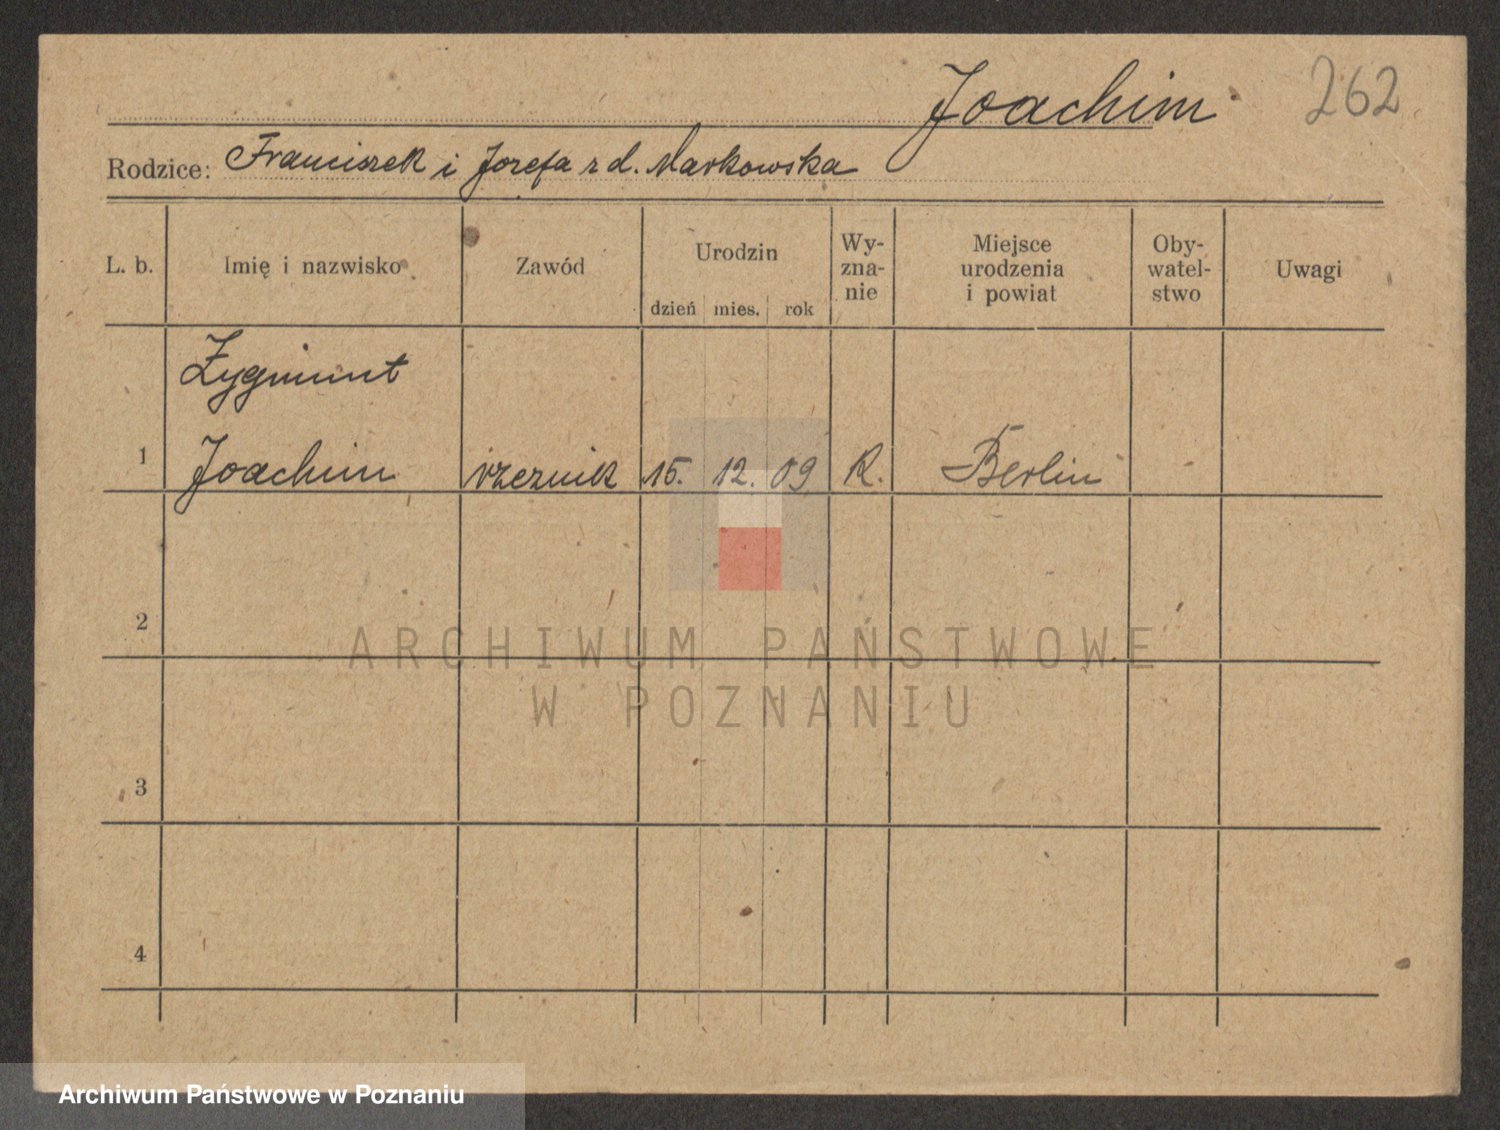 Joachim 262
Rodzice: Franciszek i Jozefa z d. Markowska
L. b. Imię i nazwisko Zawód Urodzin dzień mies. rok Wy-zna-nie Miejsce urodzenia i powiat Oby-watel-stwo Uwagi
Zygmunt
1 Joachim rzeznik 15. 12. 09 R. Berlin
2
ARCHIWUM PAŃSTWOWE
W POZNANIU
3
4
Archiwum Państwowe w Poznaniu